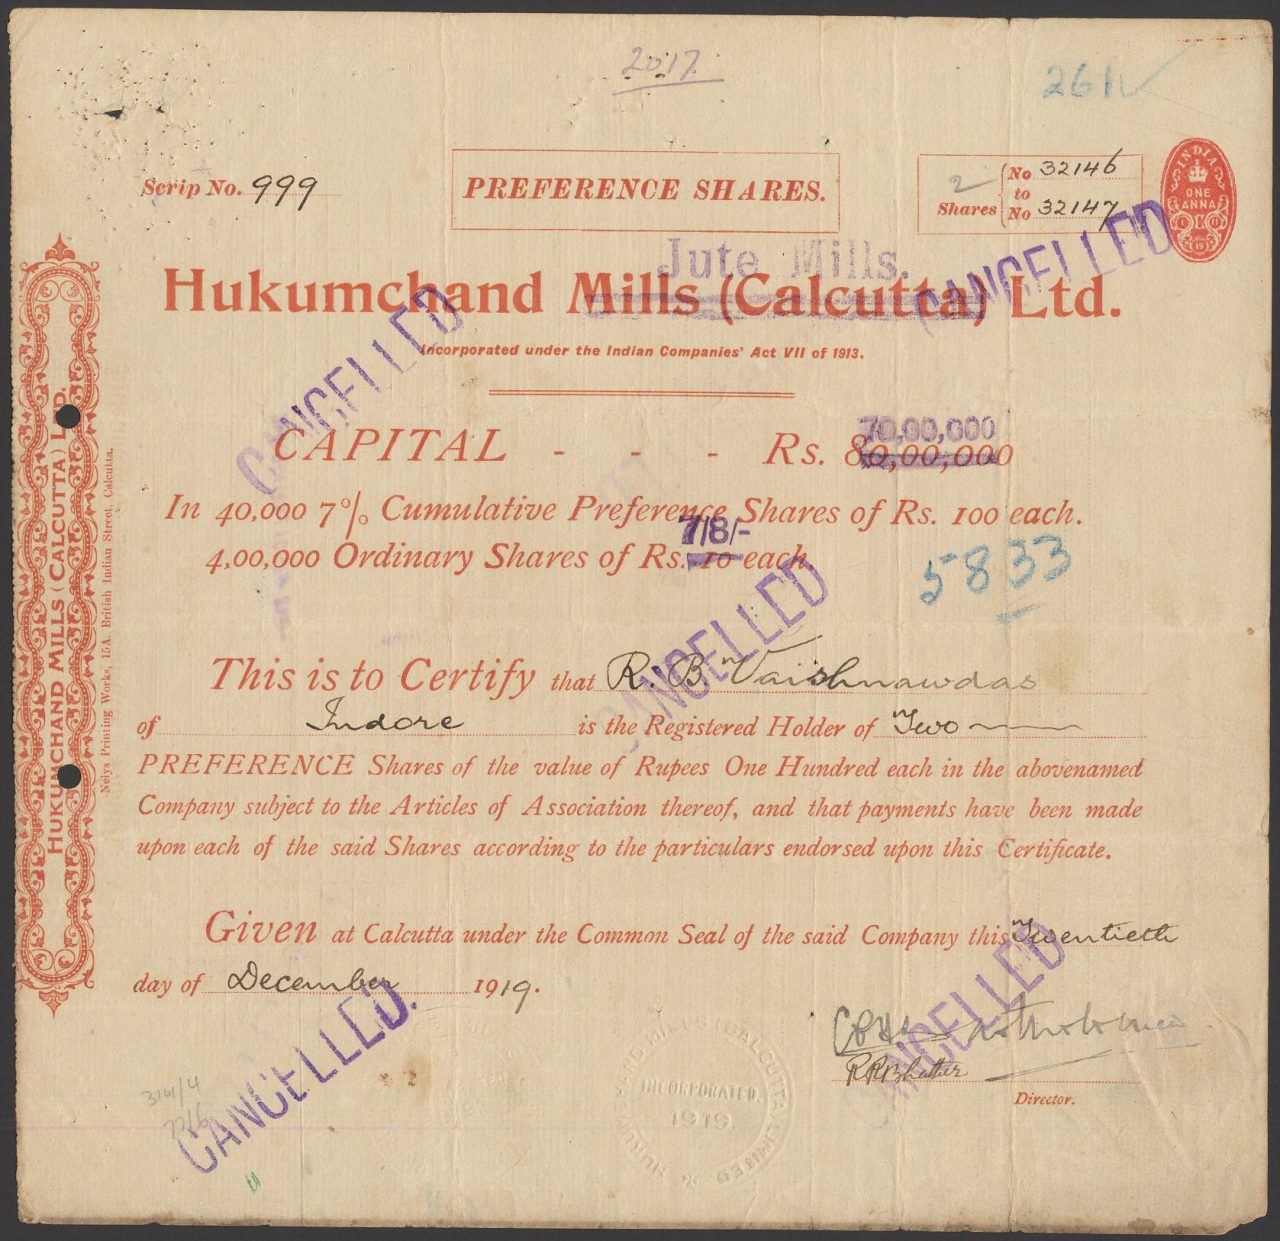 2017.
261
Scrip No. 999
PREFERENCE SHARES.
2 Shares
No 32146
to
No 32147
INDIA
ONE
ANNA
CANCELLED
Jute Mills.
Hukumchand Mills (Calcutta) Ltd.
Incorporated under the Indian Companies' Act VII of 1913.
CANCELLED
70,00,000
CAPITAL - - - Rs. 80,00,000
In 40,000 7% Cumulative Preference Shares of Rs. 100 each.
7/8/-
4,00,000 Ordinary Shares of Rs. 10 each.
5833
CANCELLED
This is to Certify that R. B. Vaishnawdas
of Indore is the Registered Holder of Two
PREFERENCE Shares of the value of Rupees One Hundred each in the abovenamed
Company subject to the Articles of Association thereof, and that payments have been made
upon each of the said Shares according to the particulars endorsed upon this Certificate.
Given at Calcutta under the Common Seal of the said Company this Twentieth
day of December 1919.
CANCELLED.
CANCELLED
Director.
INCORPORATED.
1919.
HUKUMCHAND MILLS (CALCUTTA) LTD.
Nelys Printing Works, 15A, British Indian Street, Calcutta.